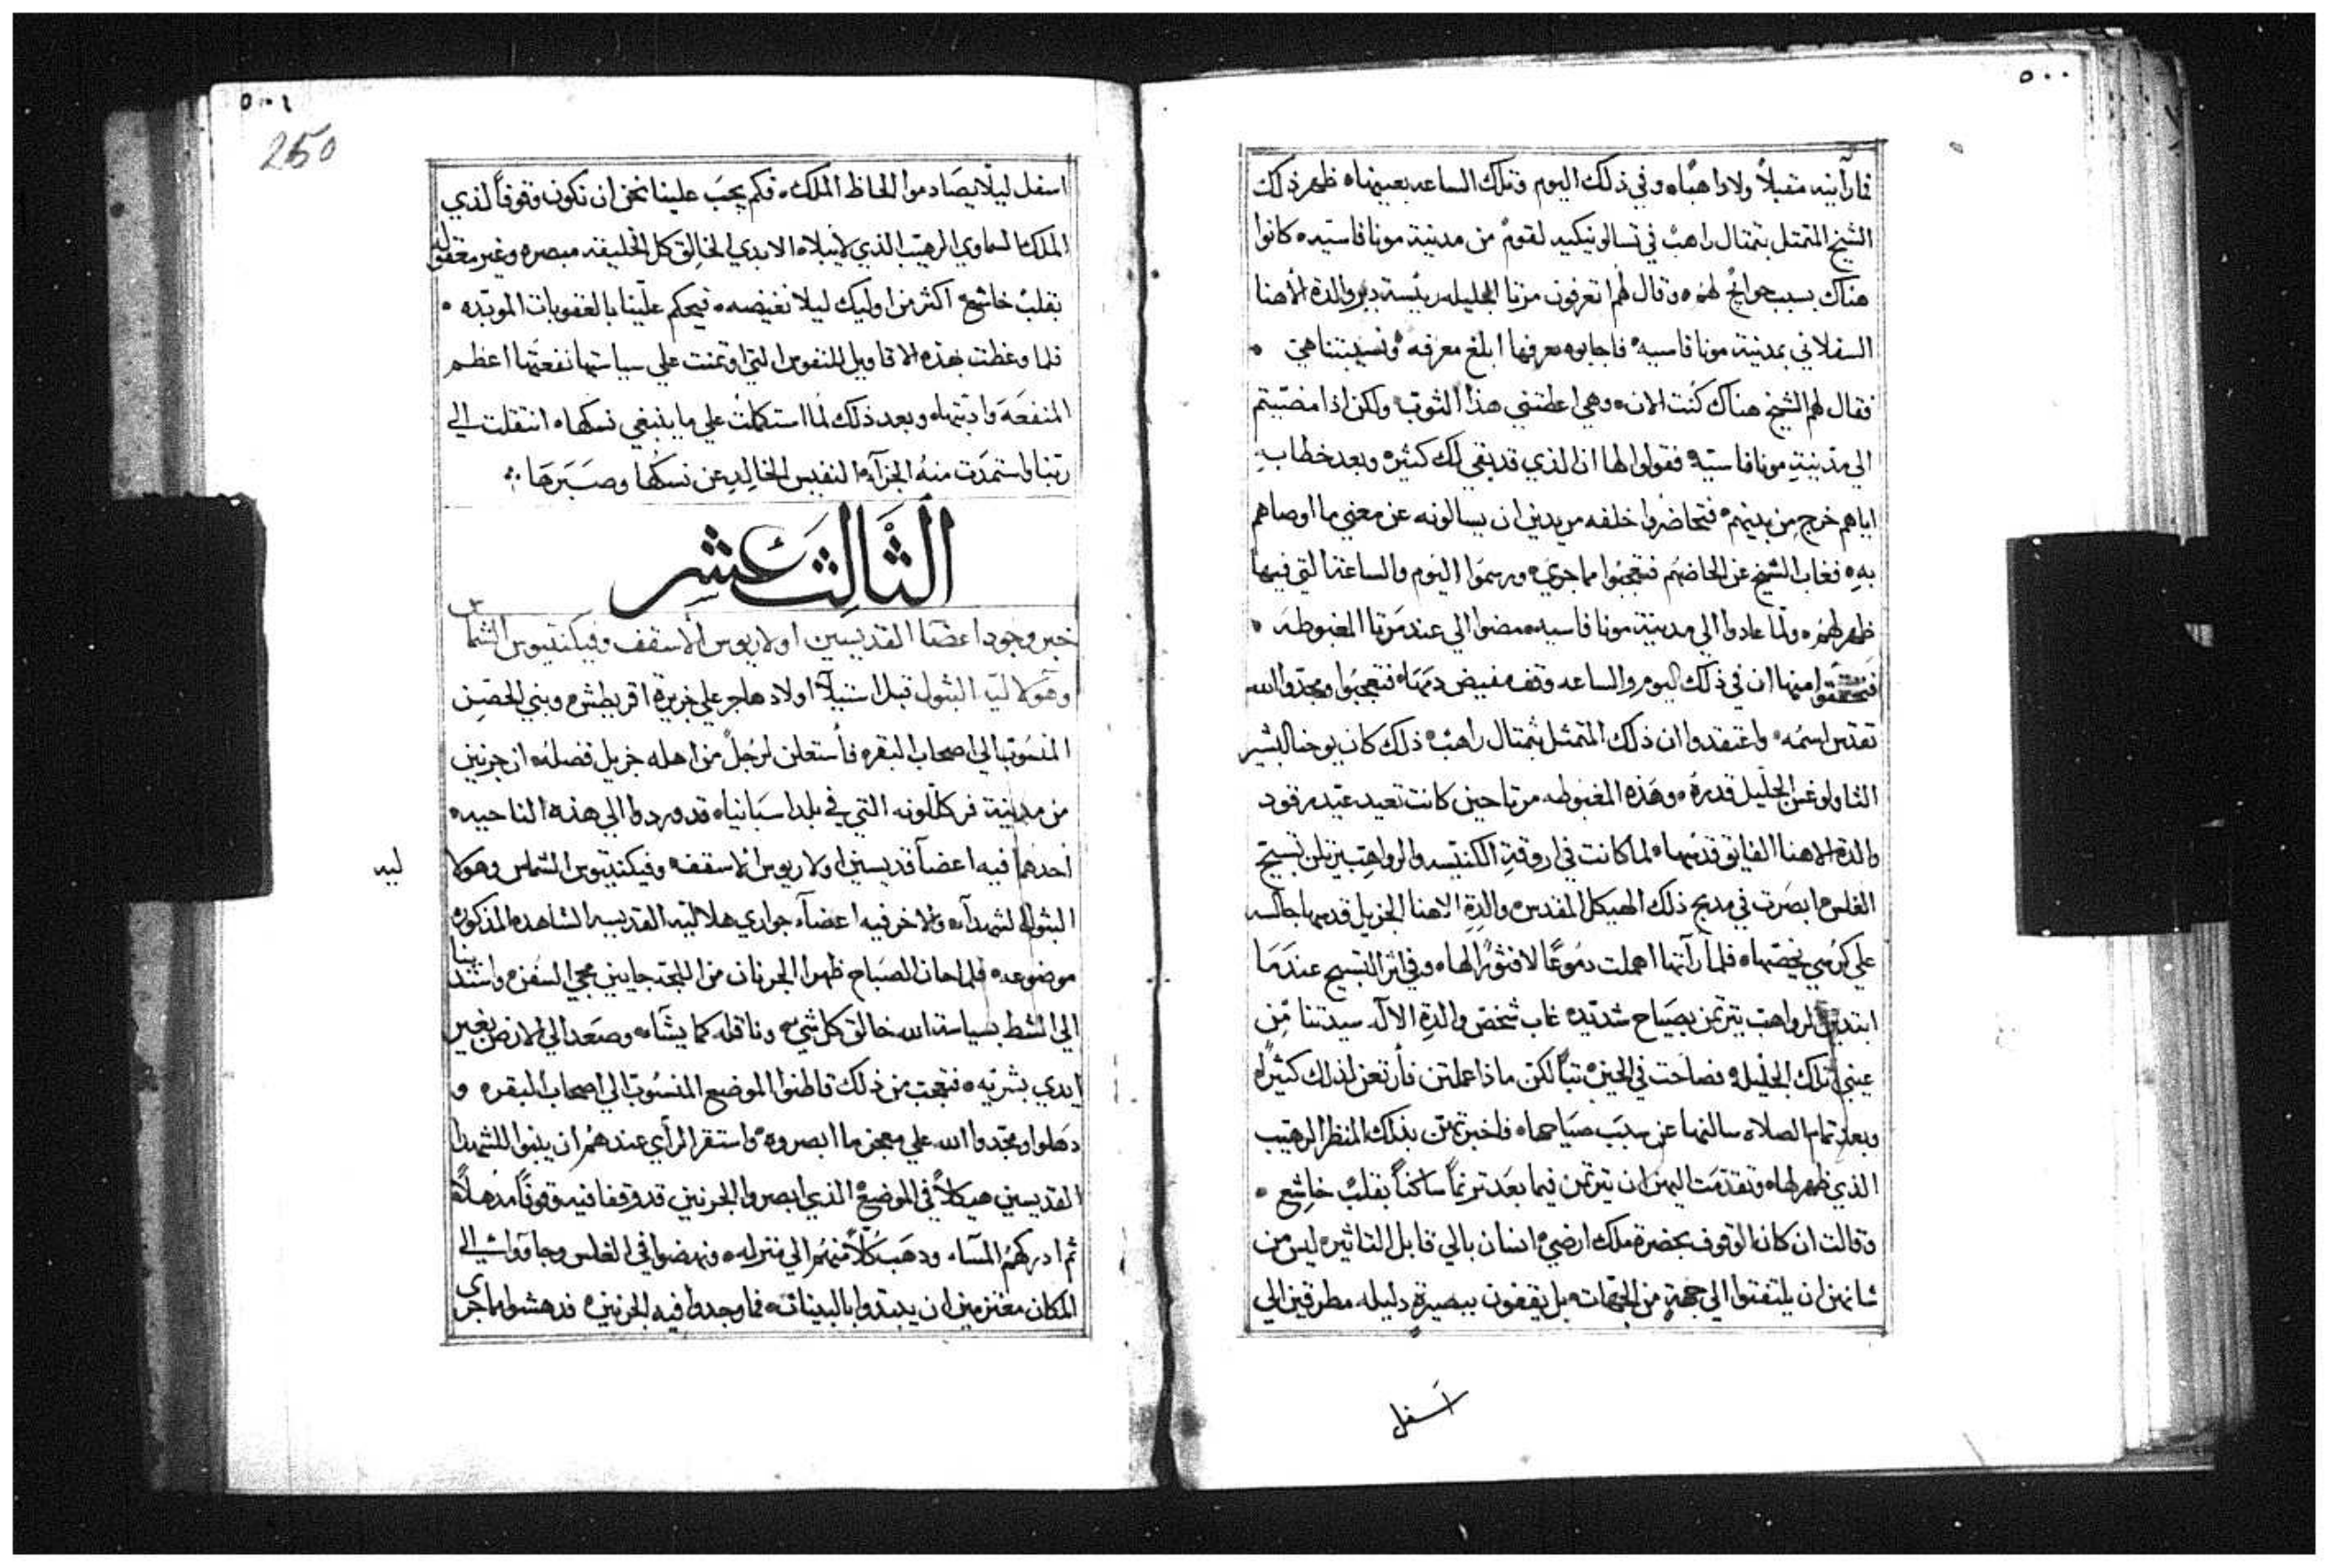 ٥٠٠
فارآيته مقبلاً ولا ذاهبًا، وفي ذلك اليوم وتلك الساعه بعينها ظهر ذلك
الشيخ المتمثل بتمثال راهب في تسالونيكيه لقوم من مدينة مونافاسيه، كانوا
هناك بسبب حوايج لهم، وقال لهم اتعرفون مرتا الجليله رييسة دير والدة الاهنا
السفلاني بمدينة مونافاسيه فاجابوه نعرفها ابلغ معرفه ونسيبتنا هي
فقال لهم الشيخ هناك كنت الان، وهي اعطتني هذا الثوب ولكن اذا مضيتم
الي مدينة مونافاسيه فقولوا لها ان الذي قد بقي لك كثيره وبعد خطابه
اياهم خرج من بينهم فتحاضروا خلفه مريدين ان يسالونه عن معني ما اوصاهم
به، فغاب الشيخ عن الحاضهم فتعجبوا مما جري ورسموا اليوم والساعة التي فيها
ظهر لهم، ولما عادوا الي مدينة مونافاسيه مضوا الي عند مرتا المغبوطه
فتحققوا منها ان في ذلك اليوم والساعه وقف مفيض دمها فتعجبوا ومجدوا الله
تقدس اسمه، واعتقدوا ان ذلك المتمثل بتمثال راهب ذلك كان يوحنا البشير
الثاولوغس الجليل قدره، وهذه المغبوطه مرتا حين كانت تعيد عيد رقود
والدة الاهنا الفايق قدسها، لما كانت في اروقة الكنيسه والرواهب يرتلن تسبيح
الغلس ابصرت في مديح ذلك الهيكل المقدس والدة الاهنا الجزيل قدسها جالسه
علي كرسي يخصها، فلما رآتها اهملت دموعًا لا فتورًا لها، وفي اثر التسبيح عندما
ابتدين الرواهب يترنمن بصياح شديده غاب شخص والدة الاله سيدتنا من
عيني تلك الجليله فصاحت في الحين، تبًا لكن ماذا عملتن فأرتعن لذلك كثيرًا،
وبعد تمام الصلاه سالنها عن سبب صياحها، فاخبرتهن بذلك المنظر الرهيب
الذي ظهر لها، وتقدمت اليهن ان يترنمن فيما بعد ترنمًا ساكنًا بقلب خاشع
وقالت ان كان الوقوف بحضرة ملك ارضي، انسان بالي قابل التاثير، ليس من
شانهن ان يلتفتوا الي جهة من الجهات، بل يقفون ببصيرة ذليله، مطرقين الي
اسفل
٥٠١
250
اسفل ليلا يصادموا الحاظ الملك، فكم يجب علينا نحن ان نكون وقوفًا لذي
الملك السماوي الرهيب الذي لا يبلاه الابدي الخالق كل الخليقه مبصره وغير معقوله
بقلب خاشع اكثر من اوليك ليلا نغيضه، فيحكم علينا بالعقوبات الموبده
فلما وعظت بهذه الاقاويل للنفوس التي اوتمنت علي سياستها نفعتها اعظم
المنفعه وادبتها، وبعد ذلك لما استكملت علي ما ينبغي نسكها، انتقلت الي
ربنا واستمدت منه الجزآه النفيس الخالد عن نسكها وصبرها
الثالث عشر
خبر وجود اعضا القديسين اولاريوس الاسقف وفيكنديوس الشماس
وهولاليه البتول قبل استيلآ اولاد هاجر علي جزيرة اقريطش، وبني الحصن
المنسوب الي اصحاب البقره فأستعلن لرجل من اهله جزيل فضله، ان جرنين
من مدينة فركللونه التي في بلد اسبانيا، قد وردوا الي هذه الناحيه
احدهما فيه اعضآ قديسين اولاريوس الاسقف، وفيكنديوس الشماس وهولا
ليه
البتول الشهدآ، والاخر فيه اعضآء جواري هلاليه القديسه الشاهده المذكوره
موضوعه، فلما حان الصباح ظهرا الجرنان من اللجه جايين مجي السفن، واستندنا
الي الشط بسياسة الله خالق كل شي، وناقله كما يشآ، وصعدا الي الارض بغير
ايدي بشريه، فتعجبت من ذلك قاطنوا الموضع المنسوب الي اصحاب البقره و
دهلوا ومجدوا الله علي معجز ما ابصروه، واستقر الرأي عندهم ان يبنوا للشهدا
القديسين هيكلاً في الموضع الذي ابصروا الجرنين قد وقفا فيه وقوفًا مذهلاً
ثم ادركهم المسآ، وذهب كلاً منهم الي منزله، ونهضوا في الغلس وجاووا الي
المكان معتزمين ان يبتدوا بالبينات، فما وجدوا فيه الجرنين، فدهشوا لما جري